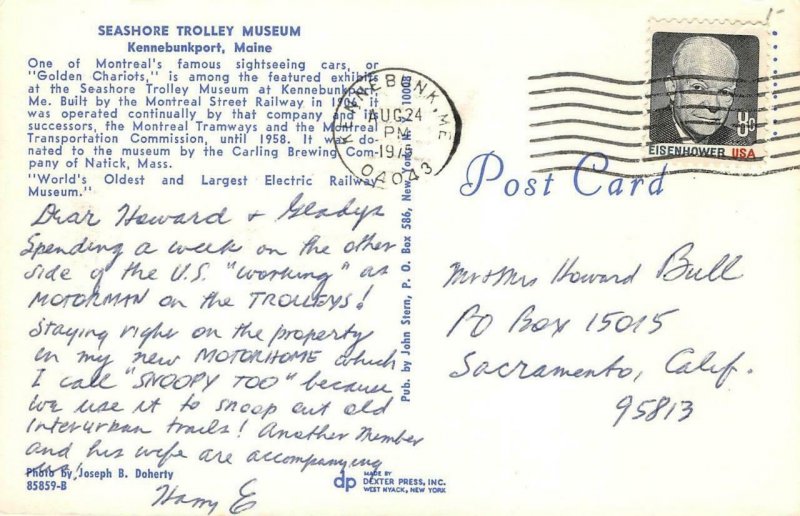 SEASHORE TROLLEY MUSEUM
Kennebunkport, Maine
One of Montreal's famous sightseeing cars, or
"Golden Chariots," is among the featured exhibits
at the Seashore Trolley Museum at Kennebunkport,
Me. Built by the Montreal Street Railway in it
was operated continually by that company and its
successors, the Montreal Tramways and the Montreal
Transportation Commission, until 1958. It was do-
nated to the museum by the Carling Brewing Com-
pany of Natick, Mass.
"World's Oldest and Largest Electric Railway
Museum."
Dear Howard + Gladys
Spending a week on the other
side of the U.S. "working" as
MOTORMAN on the TROLLEYS!
Staying right on the property
in my new MOTORHOME which
I call "SNOOPY TOO" because
we use it to snoop out old
Interurban trails! Another Member
and his wife are accompanying
us!
Harry E
Photo by Joseph B. Doherty
85859-B
dp
MADE BY
DEXTER PRESS, INC.
WEST NYACK, NEW YORK
Pub. by John Stern, P. O. Box 586, New York, 10008
KENNEBUNK, ME
AUG 24
PM
1975
04043
8c
EISENHOWER USA
Post Card
Mr + Mrs Howard Bull
PO Box 15015
Sacramento, Calif.
95813